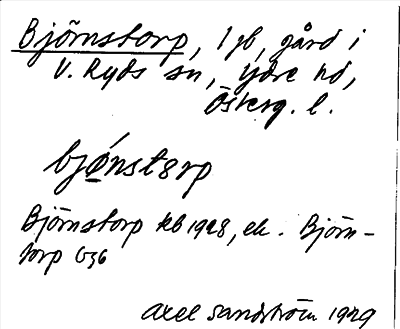 Björnstorp, 1 gb, gård i
V. Ryds sn, Ydre hd,
Österg. l.
bjǿnstørp
Björnstorp kb 1928, ek. Björn-
torp G36
Axel Sandström 1929